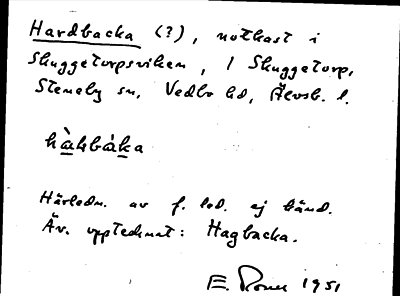 Hardbacka (?), notkast i
Skuggetorpsviken, l Skuggetorp,
Steneby sn, Vedbo hd, Älvsb. l.
hàkbàka
Härledn. av f. led. ej känd.
Äv. upptecknat: Hagbacka.
E. 1951